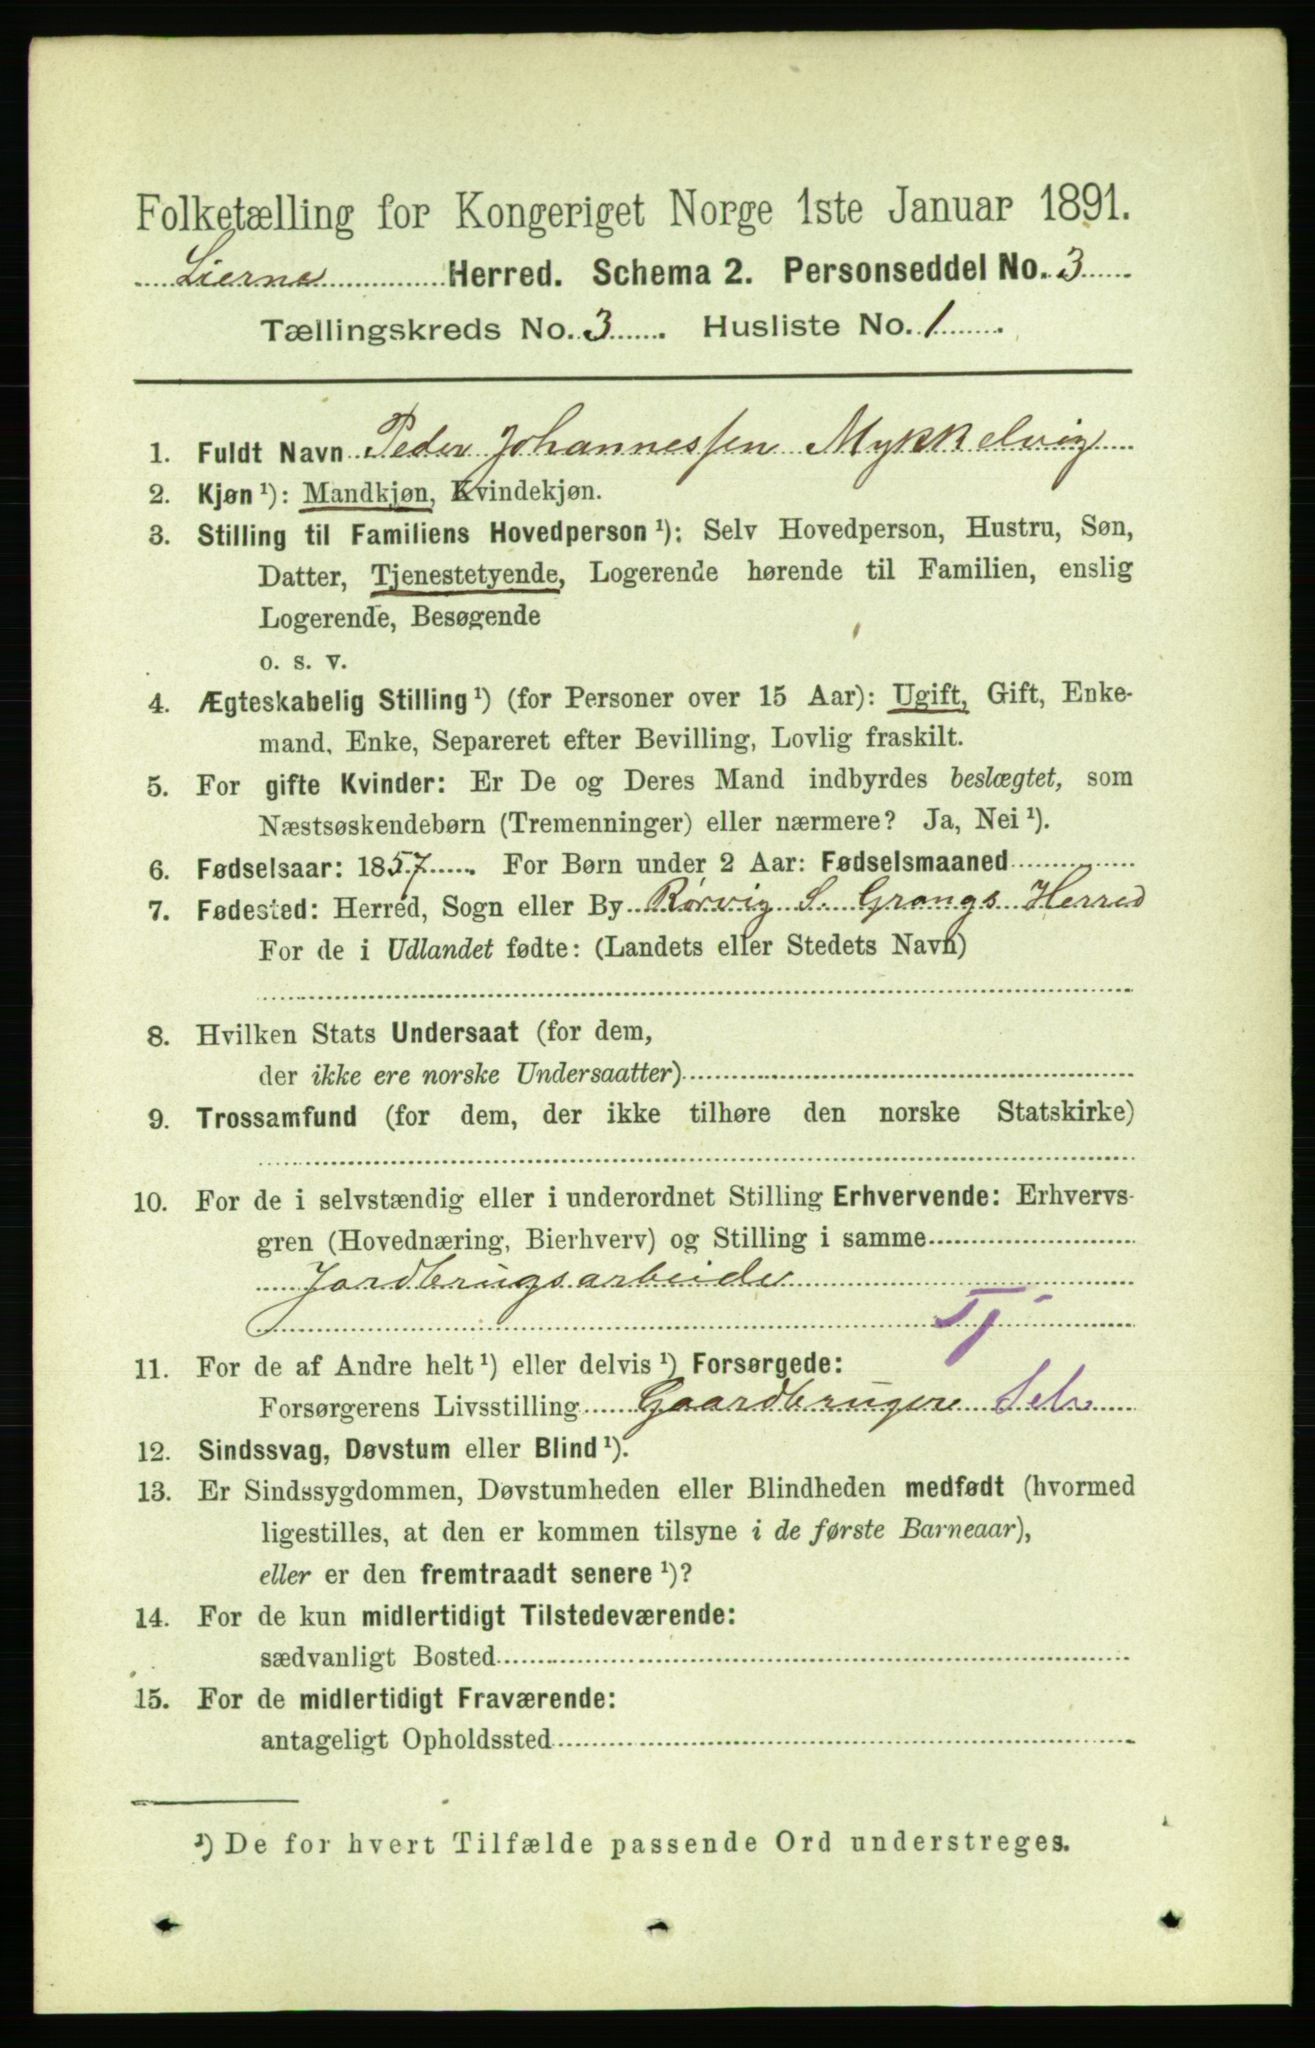 Folketælling for Kongeriget Norge 1ste Januar 1891.
Lierne Herred. Schema 2. Personseddel No. 3
Tællingskreds No. 3 Husliste No. 1
1. Fuldt Navn Peder Johannessen Mykkelvig
2. Kjøn ¹): Mandkjøn, Kvindekjøn.
3. Stilling til Familiens Hovedperson ¹): Selv Hovedperson, Hustru, Søn,
Datter, Tjenestetyende, Logerende hørende til Familien, enslig
Logerende, Besøgende
o. s. v.
4. Ægteskabelig Stilling ¹) (for Personer over 15 Aar): Ugift, Gift, Enke-
mand, Enke, Separeret efter Bevilling, Lovlig fraskilt.
5. For gifte Kvinder: Er De og Deres Mand indbyrdes beslægtet, som
Næstsøskendebørn (Tremenninger) eller nærmere? Ja, Nei ¹).
6. Fødselsaar: 1857. For Børn under 2 Aar: Fødselsmaaned
7. Fødested: Herred, Sogn eller By Rørvig S. Grongs Herred
For de i Udlandet fødte: (Landets eller Stedets Navn)
8. Hvilken Stats Undersaat (for dem,
der ikke ere norske Undersaatter)
9. Trossamfund (for dem, der ikke tilhøre den norske Statskirke)
10. For de i selvstændig eller i underordnet Stilling Erhvervende: Erhvervs-
gren (Hovednæring, Bierhverv) og Stilling i samme
Jordbrugsarbeide
Tj
11. For de af Andre helt ¹) eller delvis ¹) Forsørgede:
Forsørgerens Livsstilling Gaardbruger Selv
12. Sindssvag, Døvstum eller Blind ¹).
13. Er Sindssygdommen, Døvstumheden eller Blindheden medfødt (hvormed
ligestilles, at den er kommen tilsyne i de første Barneaar),
eller er den fremtraadt senere ¹)?
14. For de kun midlertidigt Tilstedeværende:
sædvanligt Bosted
15. For de midlertidigt Fraværende:
antageligt Opholdssted
¹) De for hvert Tilfælde passende Ord understreges.